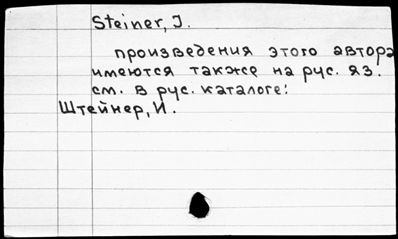 Steiner, J.
произведения этого автора
имеются также на рус. яз.
см. в рус. каталоге:
Штейнер, И.